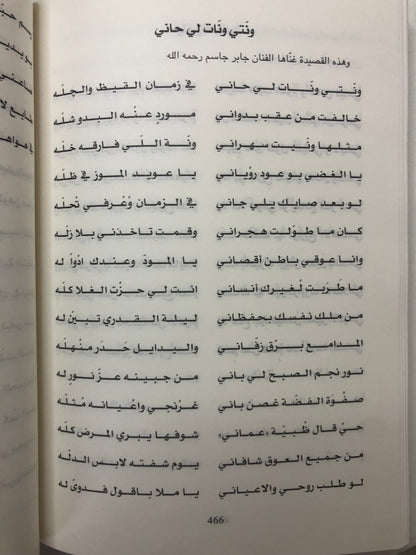 ونّتي ونّات لي حاني
وهذه القصيدة غنّاها الفنان جابر جاسم رحمه الله
ونّتي ونّات لي حاني في زمان القيظ والحِلّه
خالفت من عقب بدواني مورد عنّه البدو شلّه
مثلها ونّيت سهراني ونّة اللّي فارقه خلّه
يا الغضي بو عود روّياني يا عويد الموز في ظلّه
لو بعد صابك يلي جاني في الزمان وْعْرفي نْحلّه
كان ما طوّلت هجراني وقمت تاخذني بلا زلّه
وانا عوقي باطن أقصاني يا المودّ وعندك ادْوا له
ما طربت لْغيرك آنساني انت لي حزْت الغلا كلّه
من ملك نفسك بحفظاني ليلة القدري تبيّن له
المدامع برْق رفّاني واليدايل حَدَر منْهلّه
نور نجم الصبح لي باني من جبينه عزّ نور له
صفْوة الفضّة غصن باني غرْنجي واعْيانه مْثلّه
حيّ قال ظبيّة «عماني» شوفها يبري المرض كلّه
من جميع العوق شافاني يوم شفته لابس الدلّه
لو طلب روحي والاعياني يا ملا باقول فدوى له
466